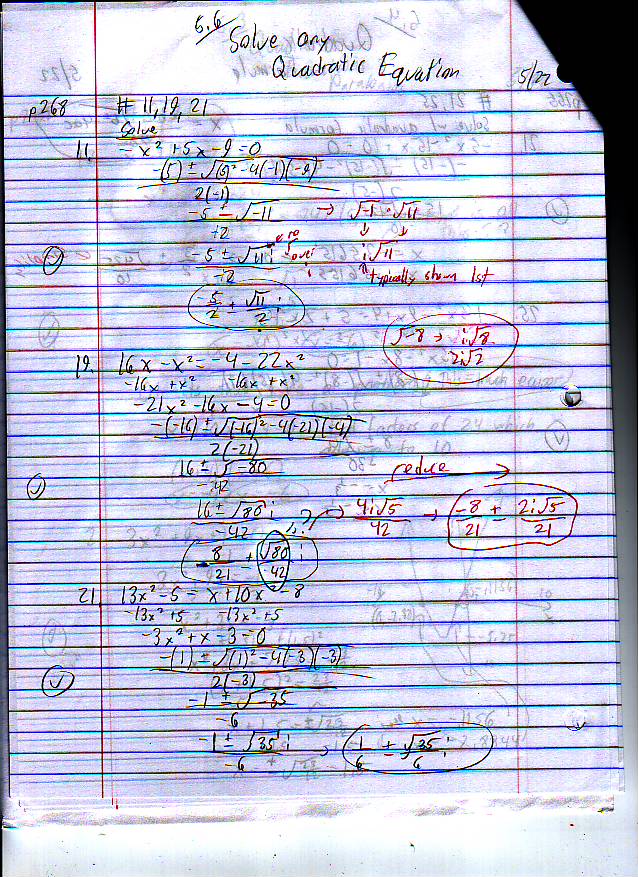 5.6
Solve any
Quadratic Equation 5/22
p268 # 11, 19, 21
Solve
11. -x² + 5x - 9 = 0
-(5) ± √(5)² - 4(-1)(-9)
2(-1)
-5 ± √-11 → √-1 · √11
-2
-5 ± √11 i i√11
-2 typically shown 1st
5/2 ± √11/2 i
√-8 → i√8
2i√2
19. 16x - x² = -4 - 22x²
-16x + x² -16x + x²
-21x² - 16x - 4 = 0
-(-16) ± √(-16)² - 4(-21)(-4)
2(-21)
16 ± √-80 reduce
-42
16 ± √80 i → 4i√5 → -8 ± 2i√5
-42 42 21 21
-8/21 ± √80/-42 i
21. 13x² - 5 = x + 10x² - 8
-13x² + 5 -13x² + 5
-3x² + x - 3 = 0
-(1) ± √(1)² - 4(-3)(-3)
2(-3)
-1 ± √-35
-6
-1 ± √35 i → -1/6 ± √35/6 i
-6